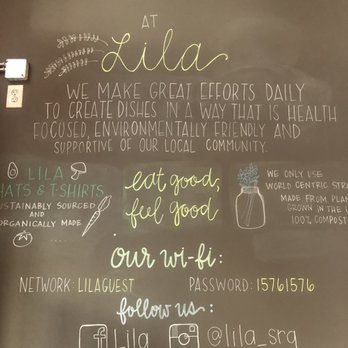 AT
Lila
WE MAKE GREAT EFFORTS DAILY
TO CREATE DISHES IN A WAY THAT IS HEALTH
FOCUSED, ENVIRONMENTALLY FRIENDLY AND
SUPPORTIVE OF OUR LOCAL COMMUNITY.
LILA
HATS & T-SHIRTS
SUSTAINABLY SOURCED
AND
ORGANICALLY MADE
eat good,
feel good
WE ONLY USE
WORLD CENTRIC STRA
MADE FROM PLAN
GROWN IN THE U
100% COMPOST
our wi-fi:
NETWORK: LILAGUEST
PASSWORD: 15761576
follow us:
f Lila
@lila_srq